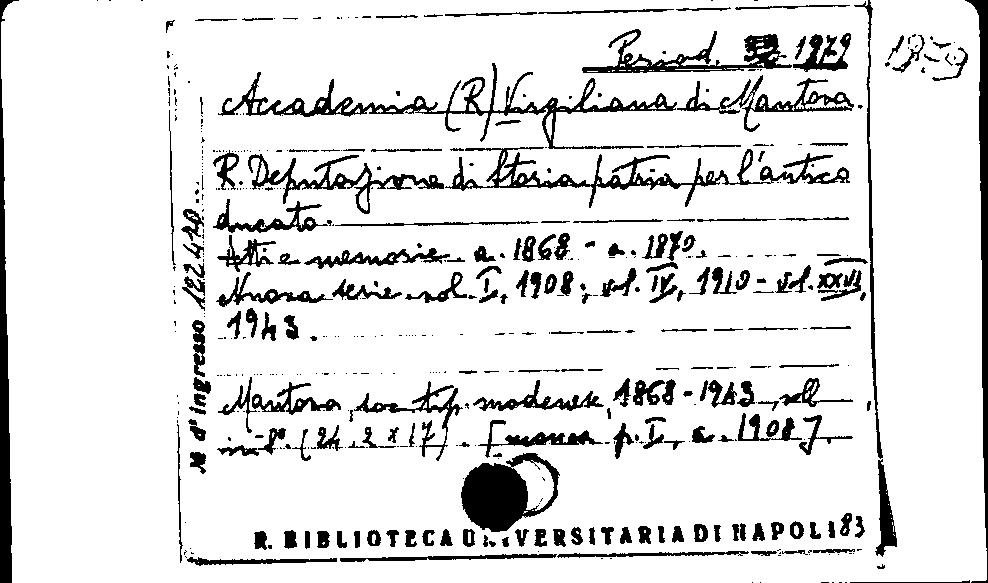 Period. 1979
1979
Accademia (R) Virgiliana di Mantova.
R. Deputazione di Storia patria per l'antico
ducato.
Atti e memorie a. 1868 - a. 1870.
Nuova serie. vol. I, 1908; vol. IV, 1910 - vol. XXVI,
1943.
Mantova, soc tip. modenese, 1868-1943, voll
in-8º. (24,2 x 17). [manca p. I, a. 1908].
R. BIBLIOTECA UNIVERSITARIA DI NAPOLI 83
№ d'ingresso 122420